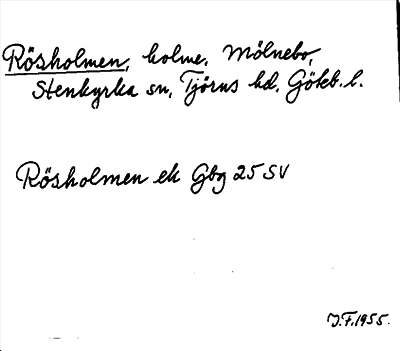 Rösholmen, holme, Mölnebo,
Stenkyrka sn, Tjörns hd, Götebl. l.
Rösholmen ek Gbg 25 SV
J.F. 1955.